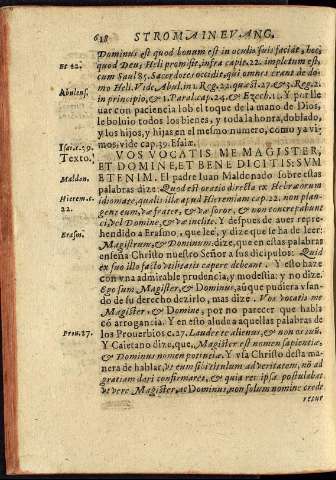 618 STROMA IN EV. ANG.
Dominus est quod bonum est in oculis suis faciat, hoc,
Et 22. quod Deus Heli promisit, infra capit. 22. impletum est,
cum Saul 85. Sacerdotes occidit, qui omnes erant de do-
Abulens. mo Heli. Vide, Abul. in 1. Reg. 22. quæst. 27. & 3. Reg. 2.
in principio, & 1. Paral. cap. 24. & Ezech. 1. Y por lle
uar con paciencia Iob el toque de la mano de Dios,
le boluio todos los bienes, y toda la honra, doblado,
y los hijos, y hijas en el mesmo numero, como ya vi-
Isaiæ. 39. mos, vide cap. 39. Esaiæ.
Texto. VOS VOCATIS ME MAGISTER,
ET DOMINE, ET BENE DICITIS: SVM
Maldon. ETENIM. El padre Iuan Maldonado sobre estas
palabras dize. Quod est oratio directa ex Hebræorum
Hierem. c. idiomate, qualis illa apud Hieremiam cap. 22. non plan-
22. gent eum, væ frater, & væ soror, & non concrepabunt
ei, væ Domine, & væ inclite. Y despues de auer repre-
Erasm. hendido a Erasmo, que lee, y dize que se ha de leer:
Magistrum, & Dominum: dize, que en estas palabras
enseña Christo nuestro Señor a sus dicipulos: Quid
ex suo illo facto vtilitatis capere debeant. Y esto haze
con vna admirable prudencia, y modestia: y no dize.
Ego sum Magister, & Dominus, aũque pudiera vsan-
do de su derecho dezirlo, mas dize. Vos vocatis me
Magister, & Domine, por no parecer que habla
có arrogancia. Y en esto aludea aquellas palabras de
Prou. 27. los Prouerbios c. 27. Laudet te alienus, & non os tuũ.
Y Caietano dize, que, Magister est nomen sapientiæ
& Dominus nomen potentiæ. Y vsa Christo desta ma-
nera de hablar, vt eum sibi titulum ad veritatem, nõ ad
gratiam dari confirmaret, & quia res ipsa postulabat
vt vere Magister, ac Dominus, non solum nomine crede
retur